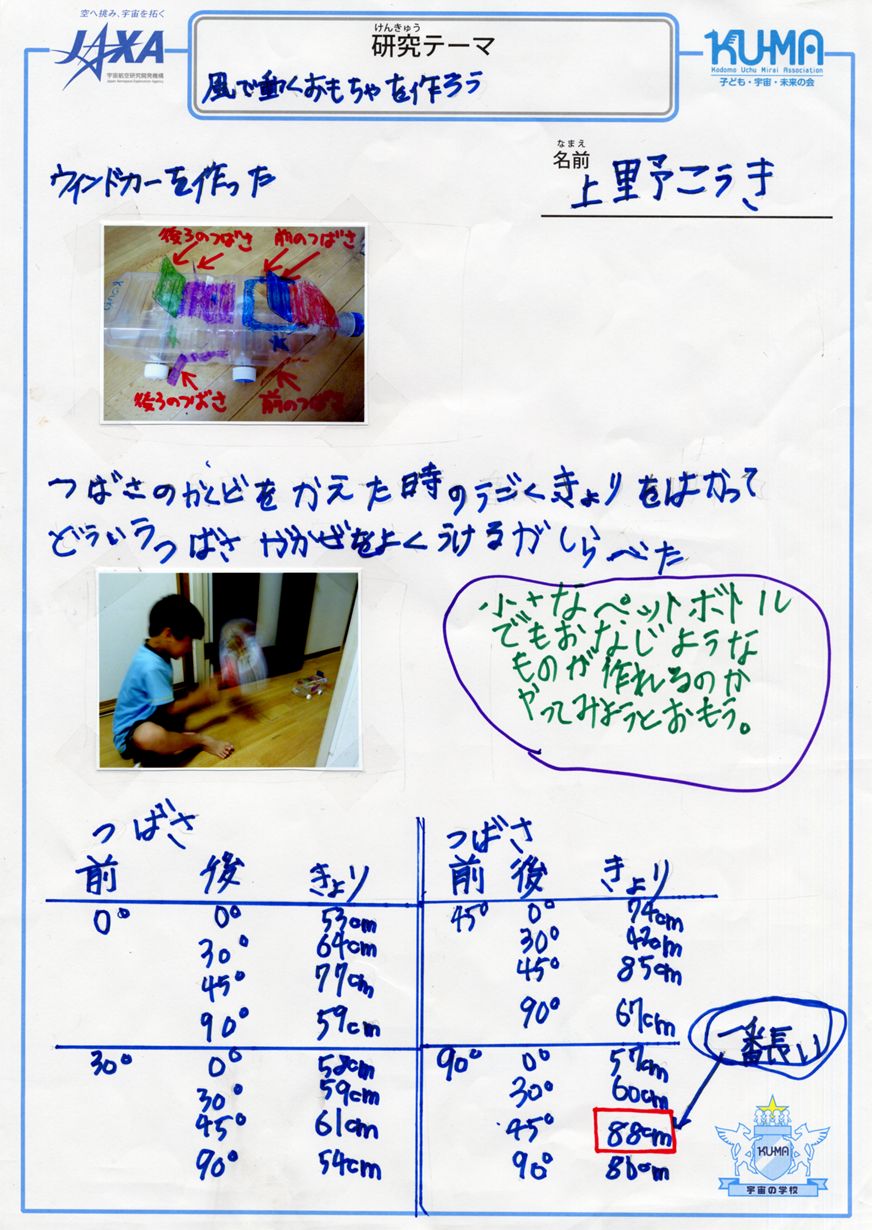 空へ挑み、宇宙を拓く
JAXA
宇宙航空研究開発機構
Japan Aerospace Exploration Agency
けんきゅう
研究テーマ
風で動くおもちゃを作ろう
KU-MA
Kodomo Uchu Mirai Association
子ども・宇宙・未来の会
なまえ
名前
上里予こうき
ウィンドカーを作った
後ろのつばさ 前のつばさ
後ろのつばさ 前のつばさ
つばさのかくどをかえた時のうごくきょりをはかって
どういうつばさがかぜをよくうけるがしらべた
小さなペットボトル
でもおなじような
ものが作れるのか
やってみようとおもう。
つばさ
前 後 きょり
0° 0° 53cm
30° 64cm
45° 77cm
90° 59cm
30° 0° 58cm
30° 59cm
45° 61cm
90° 54cm
つばさ
前 後 きょり
45° 0° 74cm
30° 42cm
45° 85cm
90° 67cm
90° 0° 57cm
30° 60cm
45° 88cm
90°
一番長い
KU-MA
宇宙の学校